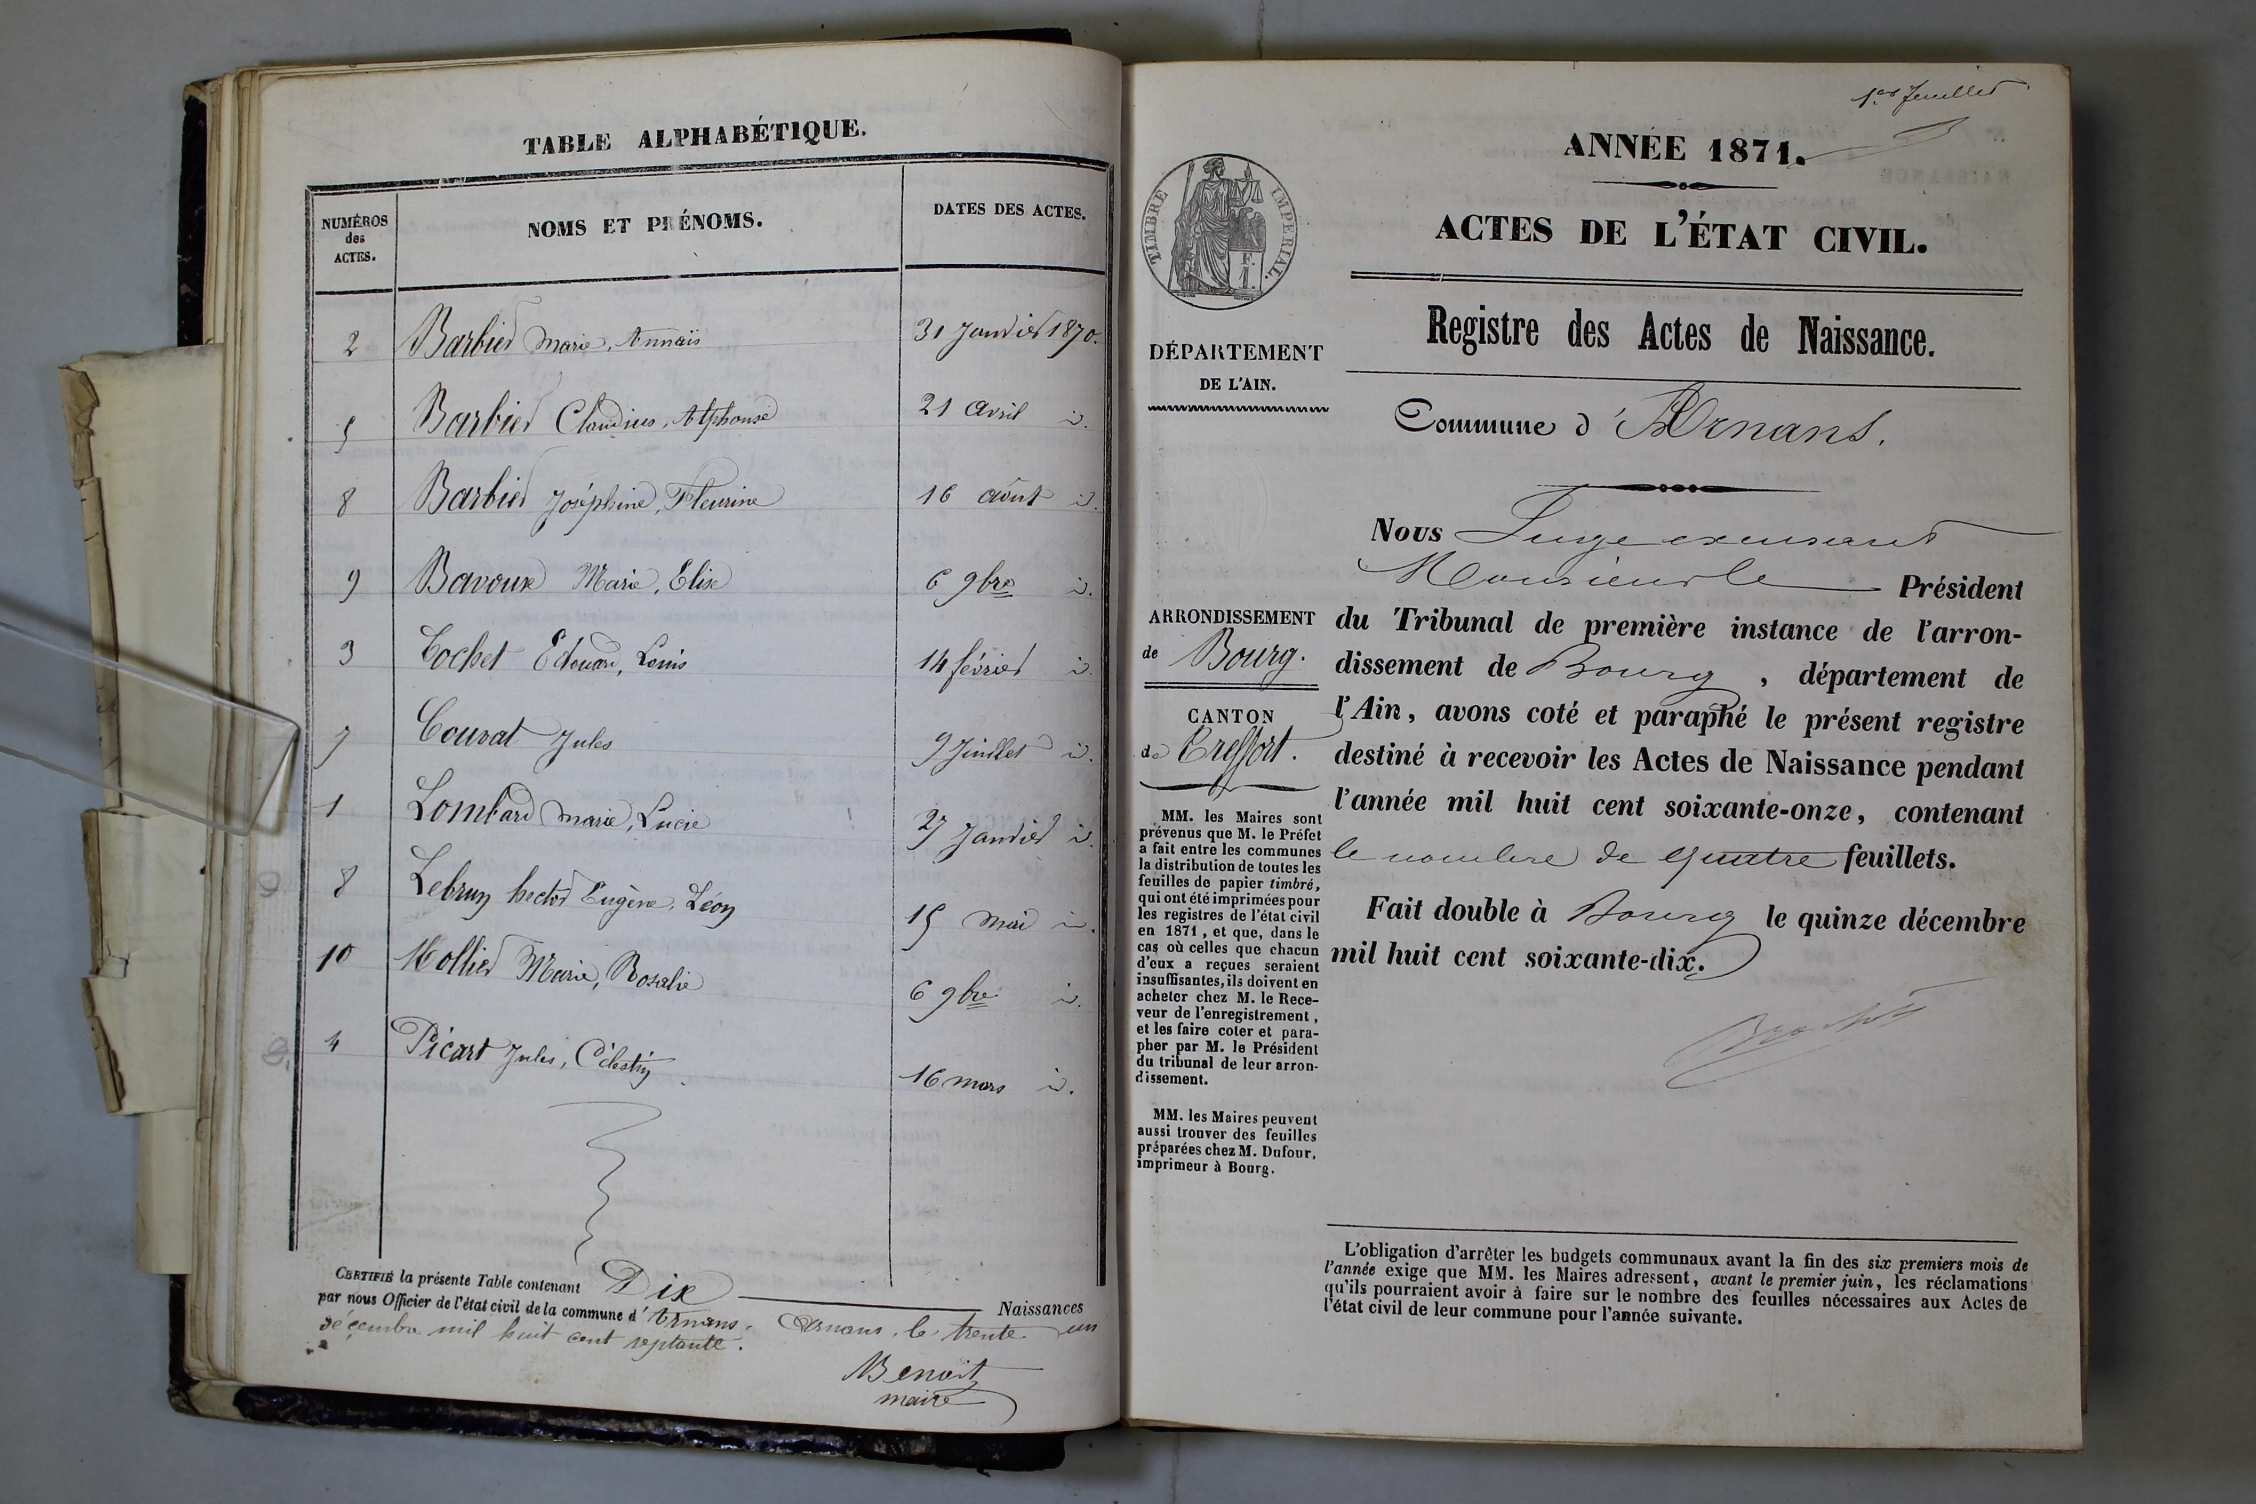 TABLE ALPHABÉTIQUE.
NUMÉROS des ACTES. NOMS ET PRÉNOMS. DATES DES ACTES.
2 Barbier Marie, Annaïs 31 Janvier 1870.
5 Barbier Claudius, Alphonse 21 avril id.
8 Barbier Joséphine, Fleurine 16 août id.
9 Bavoux Marie, Elise 6 9bre id.
3 Cochet Edouard, Louis 14 février id.
7 Couvat Jules 9 Juillet id.
1 Lombard Marie, Lucie 27 Janvier id.
8 Lebrun hector Eugène, Léon 15 mai id.
10 Mollier Marie, Rosalie 6 9bre id.
4 Picart Jules, Célestin 16 mars id.
CERTIFIÉ la présente Table contenant Dix Naissances
par nous Officier de l'état civil de la commune d' Arnans. Arnans, le trente un
décembre mil huit cent septante.
Benoit
maire
1er feuillet
ANNÉE 1871.
ACTES DE L'ÉTAT CIVIL.
Registre des Actes de Naissance.
TIMBRE IMPERIAL.
F.
1.
DÉPARTEMENT
DE L'AIN.
ARRONDISSEMENT
de Bourg.
CANTON
de Treffort.
MM. les Maires sont
prévenus que M. le Préfet
a fait entre les communes
la distribution de toutes les
feuilles de papier timbré,
qui ont été imprimées pour
les registres de l'état civil
en 1871, et que, dans le
cas où celles que chacun
d'eux a reçues seraient
insuffisantes, ils doivent en
acheter chez M. le Rece-
veur de l'enregistrement,
et les faire coter et para-
pher par M. le Président
du tribunal de leur arron-
dissement.
MM. les Maires peuvent
aussi trouver des feuilles
préparées chez M. Dufour,
imprimeur à Bourg.
Commune d' Arnans.
Nous Juge excusant
Monsieur le Président
du Tribunal de première instance de l'arron-
dissement de Bourg, département de
l'Ain, avons coté et paraphé le présent registre
destiné à recevoir les Actes de Naissance pendant
l'année mil huit cent soixante-onze, contenant
le nombre de quatre feuillets.
Fait double à Bourg le quinze décembre
mil huit cent soixante-dix.
L'obligation d'arrêter les budgets communaux avant la fin des six premiers mois de
l'année exige que MM. les Maires adressent, avant le premier juin, les réclamations
qu'ils pourraient avoir à faire sur le nombre des feuilles nécessaires aux Actes de
l'état civil de leur commune pour l'année suivante.